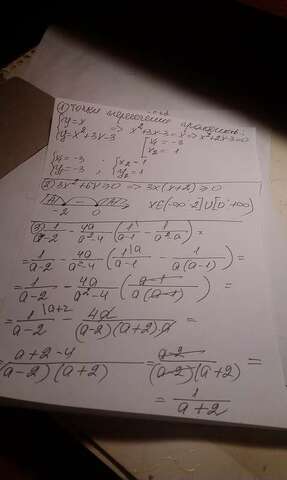 1) Точки пересечения графиков:
{y=x
{y=x²+3x-3 => x²+3x-3=x => x²+2x-3=0
[x₁=-3
[x₂=1
{x₁=-3 ; {x₂=1
{y₁=-3 {y₂=1
2) 3x²+6x≥0 => 3x(x+2)≥0
-2 0 x∈(-∞-2]∪[0;+∞)
3) 1/(a-2) - 4a/(a²-4) (1/(a-1) - 1/(a²-a)) =
= 1/(a-2) - 4a/(a²-4) (1\a/(a-1) - 1/(a(a-1))) =
= 1/(a-2) - 4a/(a²-4) ((a-1)/(a(a-1))) =
= 1\a+2/(a-2) - 4a/((a-2)(a+2)a) =
= (a+2-4)/((a-2)(a+2)) = (a-2)/((a-2)(a+2)) =
= 1/(a+2)